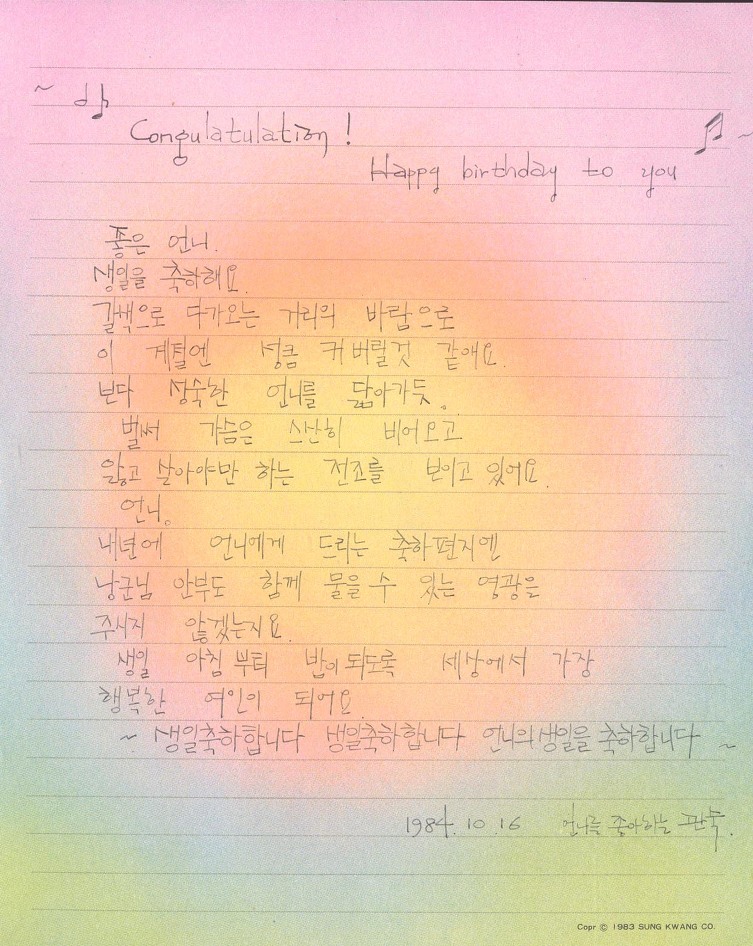 Congulatulation !
Happy birthday to you
좋은 언니.
생일을 축하해요.
갈색으로 다가오는 거리의 바람으로
이 계절엔 성큼 커 버릴것 같애요.
보다 성숙한 언니를 닮아가듯.
벌써 가슴은 스산히 비어오고
앓고 살아야만 하는 전조를 보이고 있어요.
언니.
내년에 언니에게 드리는 축하편지엔
낭군님 안부도 함께 물을 수 있는 영광을
주시지 않겠는지요.
생일 아침 부터 밤이 되도록 세상에서 가장
행복한 여인이 되어요.
~ 생일축하합니다 생일축하합니다 언니의 생일을 축하합니다 ~
1984. 10. 16 언니를 좋아하는
Copr © 1983 SUNG KWANG CO.